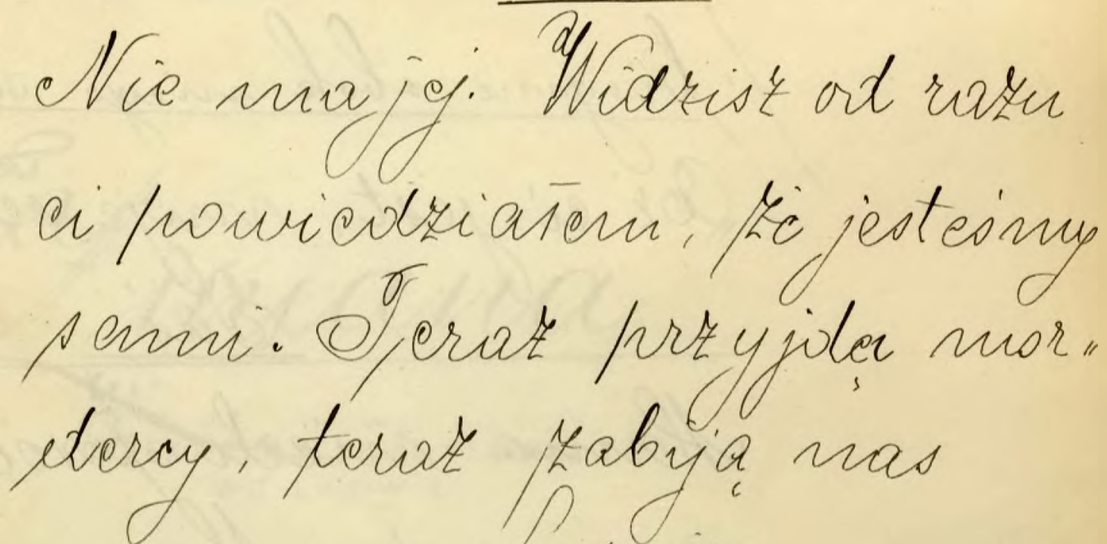 Nie ma jej. Widzisz od razu
ci powiedziałem, że jesteśmy
sami. Teraz przyjdą mor„
dercy, teraz zabiją nas